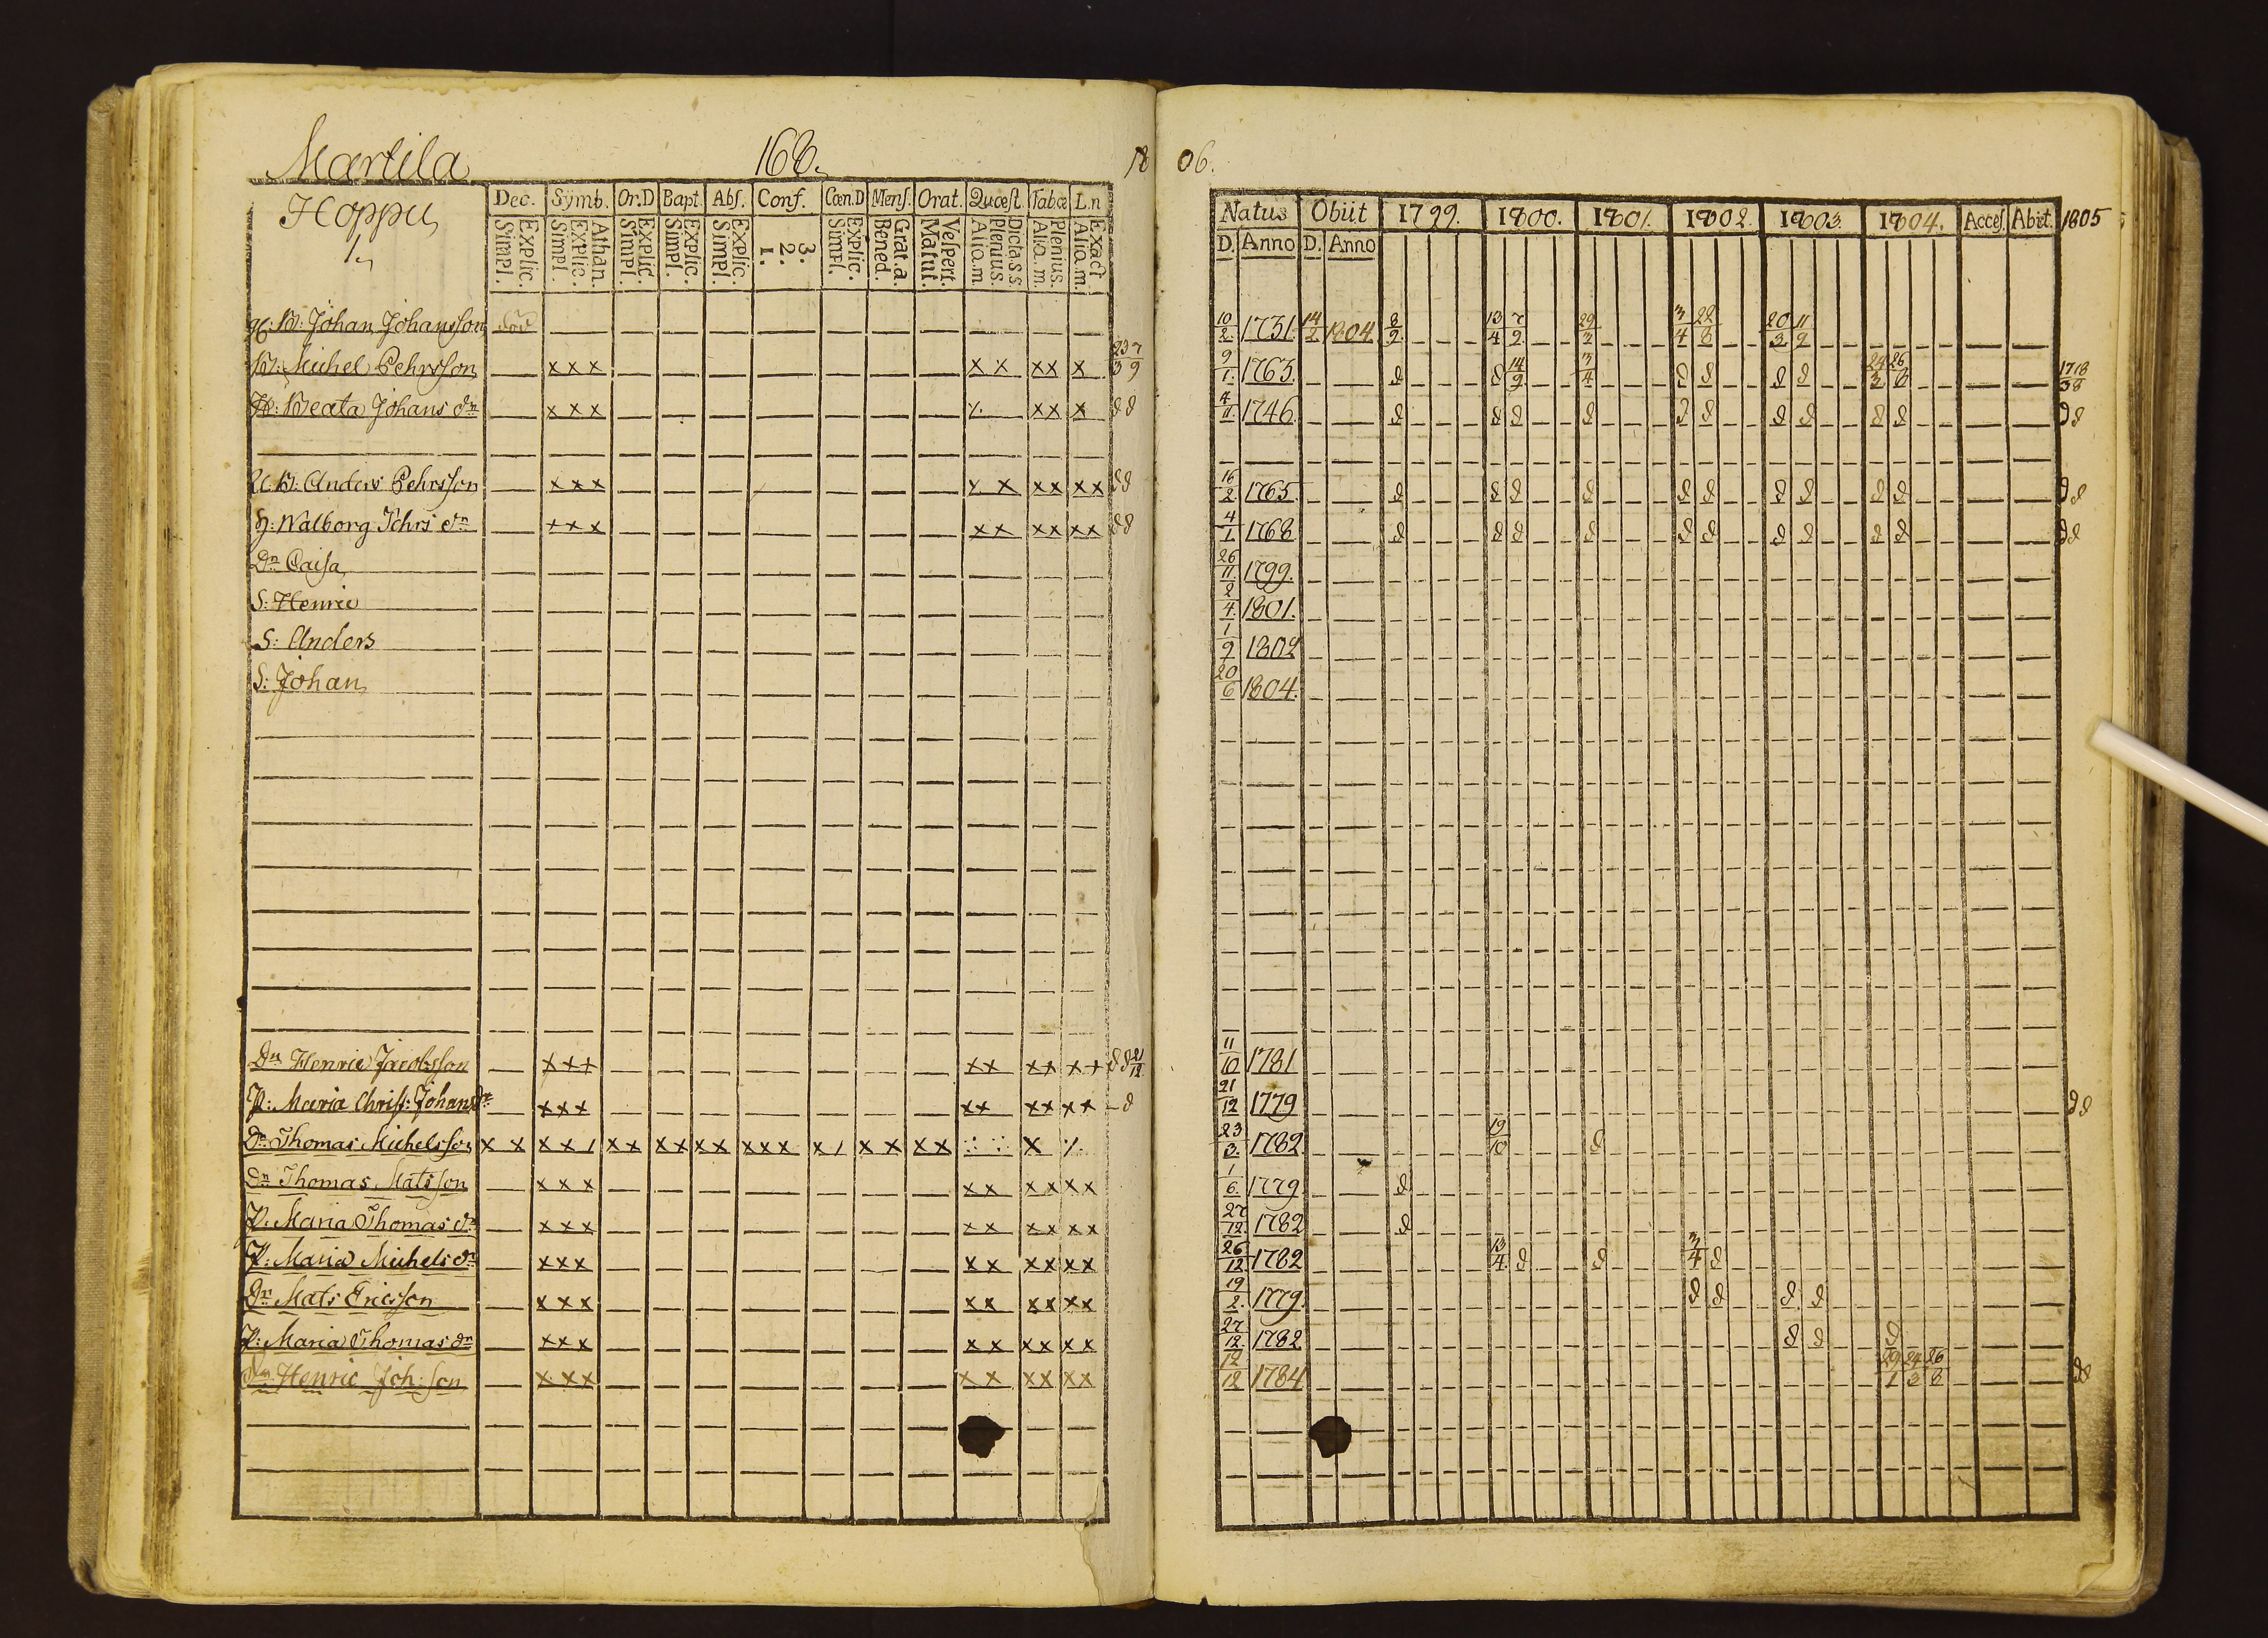 Martila 168. 18 06.
Hoppu
1.
Dec. Symb. Or.D Bapt. Abs. Conf. Cœn.D Mens. Orat. Quæst. Tabæ L.n
Explic. Simpl. Athan. Explic. Simpl. Explic. Simpl. Explic. Simpl. Explic. Simpl. 3. 2. 1. Explic. Simpl. Grat.a. Bened. Vespert. Matut. Dicta.s.s. Plenius. Alia.m Plenius. Alia.m. Exact Alia.m.
Natus Obiit 1799. 1800. 1801. 1802. 1803. 1804. Acces. Abit. 1805
D. Anno D. Anno
B: Johan Johansson död 10/2 1731. 14/2 1804 8/9 13/4 7/9 29/3 3/4 22/8 20/3 11/9
B: Michel Pehrsson xxx x x xx x 23/3 7/9 9/1. 1763. d d 14/9 3/4 d d d d 24/3 26/8 17/3 18/8
H: Beata Johans dr xxx xx x d d 4/11. 1746. d d d d d d d d d d d d
B: Anders Pehrsson xxx x x xx xx d d 16/2 1765 d d d d d d d d d d d d
H: Walborg Pehrs dr xxx xx xx xx d d 4/1. 1768 d d d d d d d d d d d d
Dr Caisa 26/11. 1799.
S: Henric 2/4. 1801.
S: Anders 1/9 1802
S: Johan 20/6 1804.
Dn Henric Jacobsson xxx xx xx xx d d 21/12 11/10 1781
P: Maria Christ: Johans dr xxx xx xx xx d 21/12 1779 d d
Dn Thomas Michelsson x x x x / xx xx xx xxx x / x x xx x 23/3. 1782. 19/10 d
Dn Thomas Matsson xxx xx xx xx 1/6. 1779. d
P: Maria Thomas dr xxx xx xx xx 27/12 1782 d
P: Maria Michels dr xxx xx xx xx 26/12 1782 13/4. d d 3/4 d
Dn Mats Ericsson xxx xx xx xx 19/2. 1779. d d d d
P: Maria Thomas dr xxx xx xx xx 27/12. 1782 d d d
Dn Henric Joh:son xxx xx xx xx 12/12 1784 29/1 24/3 26/8 d d